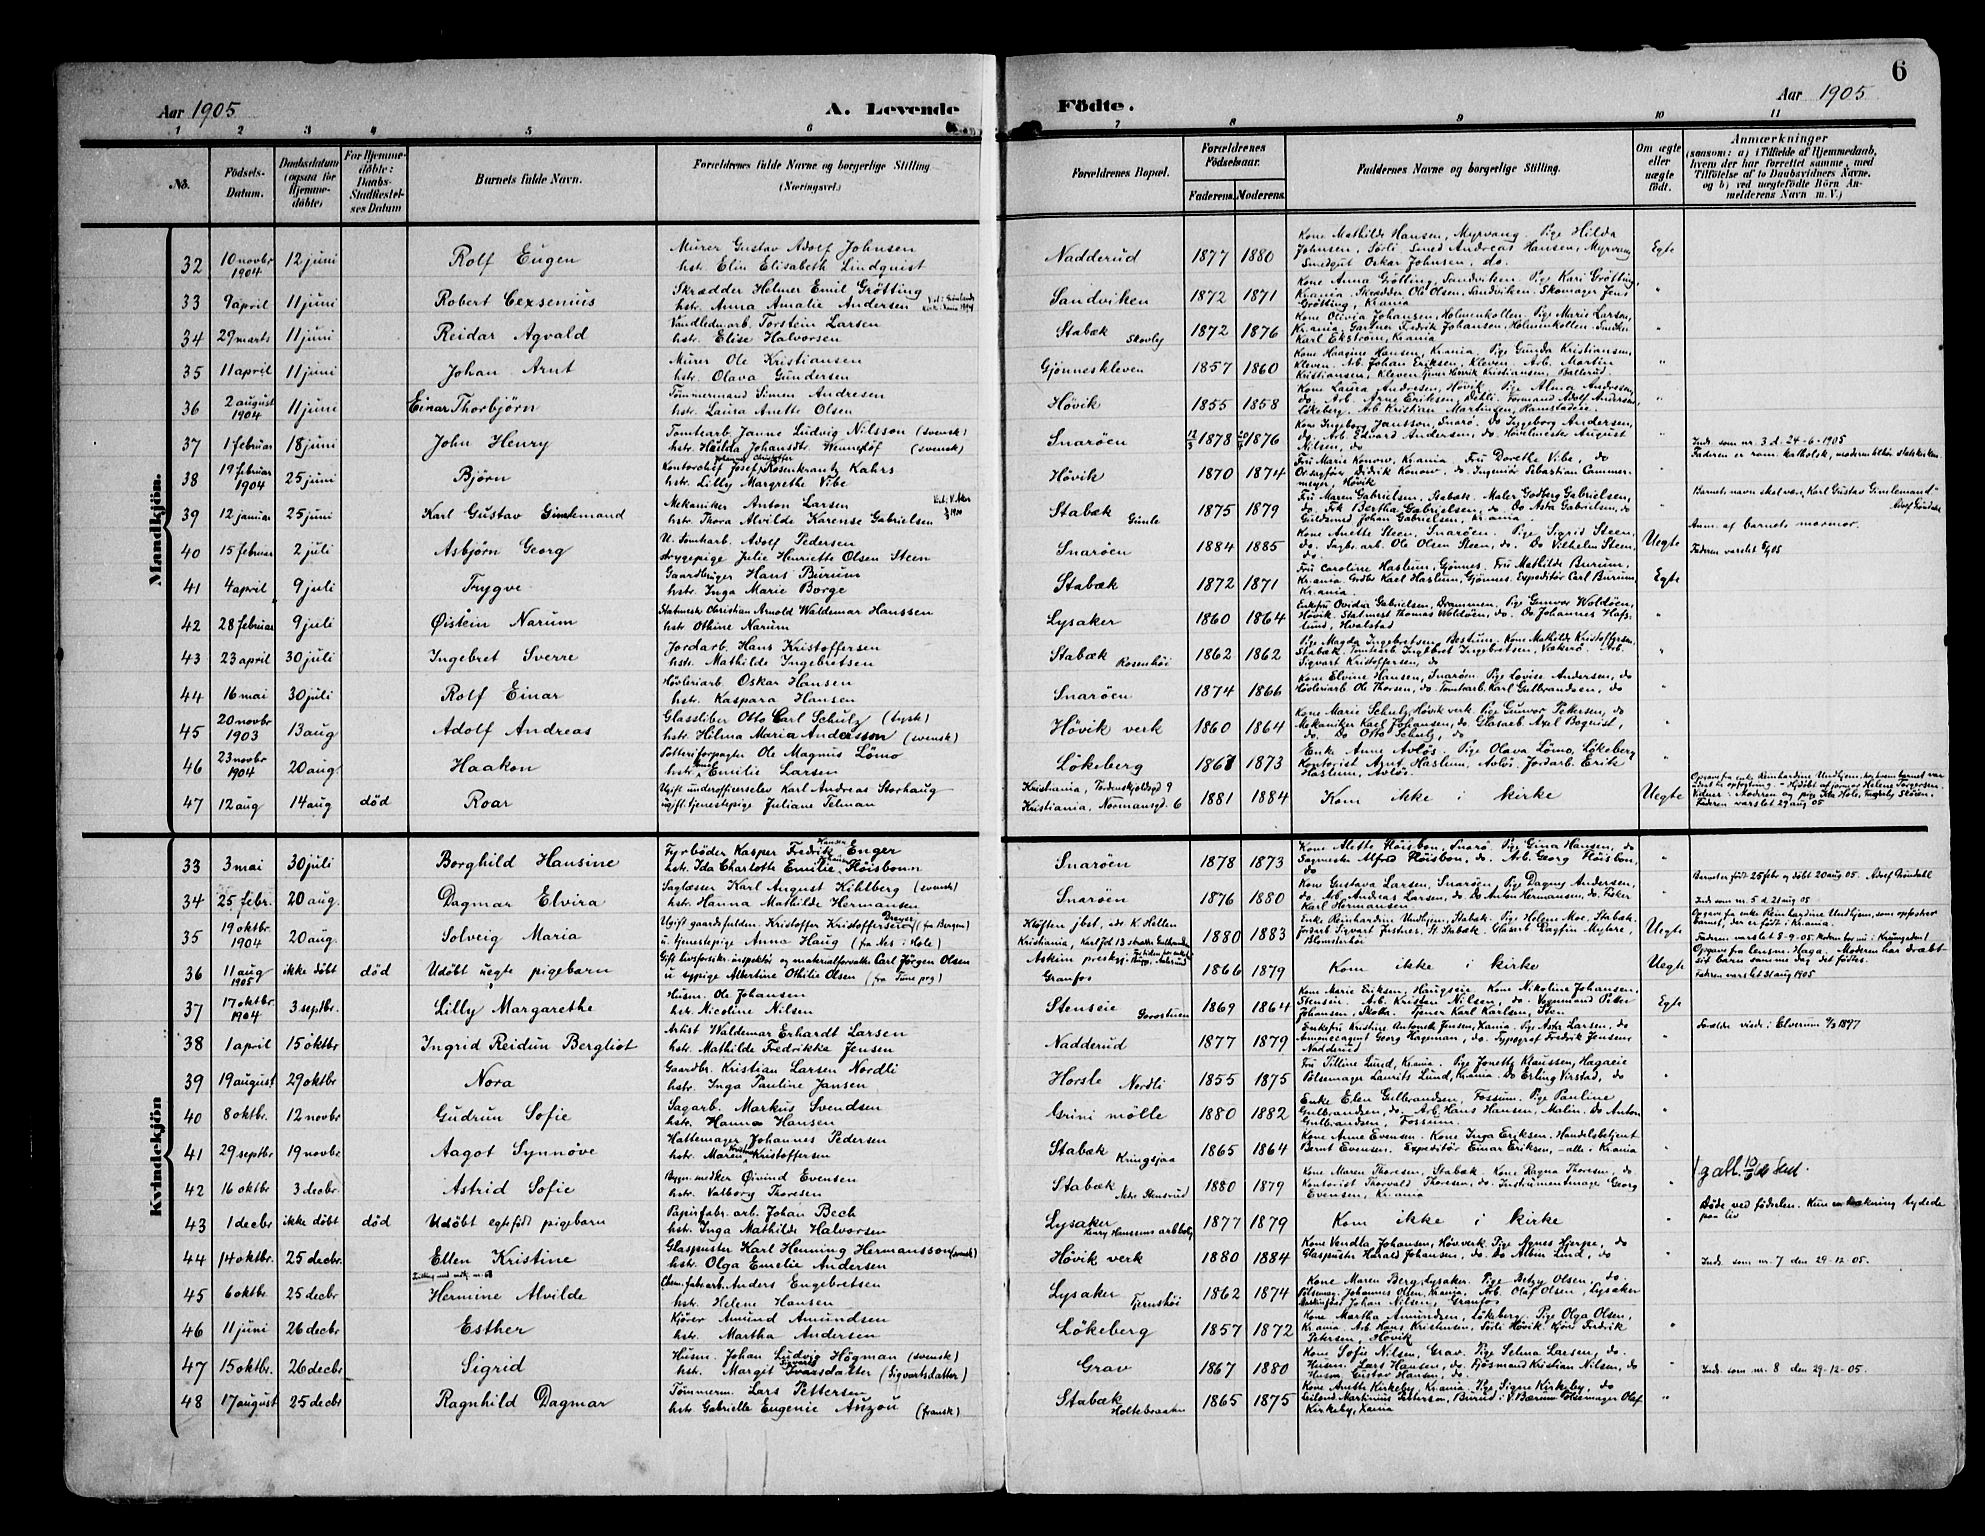 6
Aar 1905 A. Levende Födte. Aar 1905
1 2 3 4 5 6 7 8 9 10 11
No. Födsels-Datum. Daabsdatum (ogsaa for Hjemme-döbte) For Hjemme-döbte: Daabs-Stadfæstel-ses Datum Barnets fulde Navn. Forældrenes fulde Navne og borgerlige Stilling (Næringsvei.) Forældrenes Bopæl. Forældrenes Födselsaar. Faderens. Moderens. Faddernes Navne og borgerlige Stilling. Om ægte eller uægte født. Anmærkninger
(saasom: a) i Tilfælde af Hjemmedaab, hvem der har forrettet samme, med Tilföielse af to Daabsvidners Navne, og b) ved uægtefödte Börn Anmelderens Navn m. V.)
Mandkjön.
32 10 novbr 1904 12 juni Rolf Eugen Murer Gustav Adolf Johnsen Nadderud 1877 1880 Kone Mathilde Hansen, Myrvang. Pige Hilda Egte
hstr. Elin Elisabeth Lindquist Johnsen, Sörli. Smed Andreas Hansen, Myrvang
Smedgut Oskar Johnsen, do.
33 9 april 11 juni Robert Cexsenius Skrædder Helmer Emil Grötting Sandviken 1872 1871 Kone Anna Grötting, Sandviken. Pige Kari Grötting, "
hstr. Anna Amalie Andersen Kr.ania. Skrædder Ole Olsen, Sandviken. Skomager Jens
Grötting, Kr.ania
34 29 marts 11 juni Reidar Agvald Vandledn.arb. Torstein Larsen Stabæk Skovly 1872 1876 Kone Olivia Johansen, Holmenkollen. Pige Marie Larsen, "
hstr. Elise Halvorsen Kr.ania. Gartner Fredrik Johansen, Holmenkollen. Snedker
Karl Ekström, Kr.ania
35 11 april 11 juni Johan Arnt Murer Ole Kristiansen Gjønneskleven 1857 1860 Kone Haagine Hansen, Kr.ania. Pige Gunda Kristiansen, "
hstr. Olava Gundersen Kleven. Arb. Johan Eriksen, Kleven. Arb. Martin
Kristiansen, Kleven. Henrik Kristiansen, Ballerud
36 2 august 1904 11 juni Einar Thorbjörn Tömmermand Simen Andresen Hövik 1855 1858 Kone Laura Andresen, Hövik. Pige Alma Andresen "
hstr. Laura Anette Olsen do. Arb. Arne Eriksen, Dehli. Formand Adolf Andersen,
Lökeberg. Arb Kristian Martinsen, Ramstadsie.
37 1 februar 18 juni John Henry Tomtearb. Janne Ludvig Nilsson (svensk) Snaröen 1878 1876 Kone Ingeborg Jansson, Snarö. Do Ingeborg Andersen, " Indf. som nr. 3 d. 24-6-1905
hstr. Hulda Johansdtr. Wennlöf (svensk) do. Arb. Edvard Andersen, do Hövlmester August
Nilsen, do
38 19 februar 1904 25 juni Björn Kontorchef Josef Johannes Christoffer Rosenkrantz Kahrs Hövik 1870 1874 Fru Marie Konow, Kr.ania. Fru Dorothe Vibe, do " Faderen er rom. katholsk, moderen tilhør statskirken.
hstr. Lilly Margrethe Vibe Or.sagfør Didrik Konow, do. Ingeniør Sebastian Cammer-
meyer, Hövik
39 12 januar 25 juni Karl Gustav Gimlemand Mekaniker Anton Larsen Stabæk Gimle 1875 1879 Fru Maren Gabrielsen, Stabæk. Maler Godberg Gabrielsen, " Barnets navn skal være, Karl Gustav Gimlemand
hstr. Thora Alvilde Karense Gabrielsen do. Frk Bertha Gabrielsen, do. Do Asta Gabrielsen, do Adolf Gröndahl
Guldsmed Johan Gabrielsen, Kr.ania.
40 15 februar 2 juli Asbjörn Georg U. Tomtarb. Adolf Pedersen Snaröen 1884 1885 Kone Anette Steen, Snaröen. Pige Sigrid Steen Uegte Anm. af barnets mormor.
Julie Henriette Olsen Steen do. Arb. Ole Olsen Steen, do. Do Vilhelm Steen, Faderen varslet
do
41 4 april 9 juli Trygve Gaardbruger Hans Burum Stabæk 1872 1871 Fru Caroline Haslum, Gjönnes. Fru Mathilde Burum, Egte
hstr. Inga Marie Borge Kr.ania. Grdbr. Karl Haslum, Gjönnes. Expeditör Carl Burum,
Kr.ania
42 28 februar 9 juli Øistein Narum Statmestr. Christian Arnold Waldemar Hanssen Lysaker 1860 1864 Enkefru Ovidia Gabrielsen, Drammen. Pige Gunvor Woldöen, "
hstr. Othine Narum Hövik. Statmest Thomas Woldöen, do. Do Johannes Hafs-
lund, Hvalstad
43 23 april 30 juli Ingebret Sverre Jordarb. Hans Kristoffersen Stabæk Rosenhöi 1862 1862 Pige Magda Ingebretsen, Bestum. Kone Mathilde Kristoffersen, "
hstr. Mathilde Ingebretsen Stabæk. Tomtearb Ingebret Ingebretsen, Vækerö. Arb.
Sigvart Kristoffersen, do
44 16 mai 30 juli Rolf Einar Hövleriarb. Oskar Hansen Snaröen 1874 1866 Kone Elvine Hansen, Snaröen. Pige Lovise Andersen, do "
hstr. Kaspara Hansen Hövleriarb Ole Thorsen, do. Tomtarb. Karl Gulbrandsen, do
45 20 novbr 1903 13 aug Adolf Andreas Glassliber Otto Carl Schulz (tysk) Hövik verk 1860 1864 Kone Marie Schulz, Hövik verk. Pige Gunvor Pettersen, do "
hstr. Hilma Maria Andersson (svensk) Mekaniker Karl Johansen, do. Glasarb. Axel Boquist,
do. Do Otto Schulz, do
46 23 novbr 1904 20 aug. Haakon Potteriforpagter Ole Magnus Lömo Lökeberg 1867 1873 Enke Anne Avlös. Pige Olava Lömo, Lökeberg "
hstr. Emilie Larsen Kontorist Arnt Haslum, Avlös. Jordarb. Erik
Haslum, Avlös.
47 12 aug 14 aug död Roar Ugift underofficerselev Karl Andreas Storhaug Kristiania, Tordenskjoldsgd 9 1881 1884 Kom ikke i kirke Uegte
ugift tjenestepige Juliane Telman Kristiania, Normansgd. 6 Faderen varslet 29 aug 05
Kvindekjön
33 3 mai 30 juli Borghild Hansine Fyrböder Kasper Fredrik Hansen Enger Snaröen 1878 1873 Kone Alette Flöisbon, Snarö. Pige Gina Hansen, do "
hstr. Ida Charlotte Emilie Flöisbonn Sagmester Alfred Flöisbon, do. Arb. Georg Flöisbon,
do
34 25 febr. 20 aug. Dagmar Elvira Saglæsser Karl August Kihlberg (svensk) Snaröen 1876 1880 Kone Gustava Larsen, Snaröen. Pige Dagny Andersen, " Barnet er födt 25 febr og döbt 20 aug 05. Adolf Gröndahl
hstr. Hanna Mathilde Hermansen do. Arb Andreas Larsen, do. Do Anton Hermansen, do. Fisker Indf. som nr. 5 d. 21 aug 05
Karl Hermansen
35 19 oktbr. 1904 20 aug. Solveig Maria Ugift gaardsfulden. Kristoffer Kristoffersen Dreyer (fra Bergen) Klöften jbst, 1880 1883 Enke Reinhardine Undhjem, Stabæk. Pige Helen Moe, Stabæk. Uegte Opgave fra enke Reinhardine Undhjem, som opfostrer
u. tjenestepige Anna Haug (fra Nes i Hole) Kristiania, Jordarb Sigvart Justnes, St. Stabæk. barnet, der er født i Kr.ania.
Blomsterhö
36 11 aug 1905 ikke döbt död Udöbt uegte pigebarn Gift livsforsikr.inspektör og materialforvalter Carl Jörgen Olsen Askim 1866 1879 Kom ikke i kirke Uegte
u sypige Albertine Othilie Olsen (fra Tune prg) Granfos Faderen varslet 31 aug 1905
37 17 oktbr. 1904 3 septbr. Lilly Margarethe Husm. Ole Johansen Stenseie Gorostuen 1869 1864 Kone Marie Eriksen, Haugseie. Kone Nikoline Johansen, Egte
hstr. Nicoline Nilsen Stenseie. Arb. Kristen Nilsen, do. Vognmand Peder
Johansen, Skoba. Tjener Karl Karlsen, Sten
38 1 april 15 oktbr Ingrid Reidun Bergliot Artist Waldemar Erhardt Larsen Nadderud 1877 1879 Enkefru Kristine Antonette Jensen, Xania. Pige Asta Larsen, do " Forældr viede i Elverum 1897
hstr. Mathilde Fredrikke Jensen Annonceagent Georg Hageman, do. Typograf Fredrik Jensen,
Nadderud
39 19 august 29 oktbr Nora Gaardbr. Kristian Larsen Nordli Horsle Nordli 1855 1875 Fru Tilline Lund, Kr.ania. Pige Jonetty Klaussen, Hagaeie "
hstr. Inga Pauline Jansen Pölsemager Laurits Lund, Kr.ania. Do Erling Virstad, do
40 8 oktbr. 12 novbr Gudrun Sofie Sagarb. Markus Svendsen Grini mölle 1880 1882 Enke Elen Gulbrandsen, Fossum. Pige Pauline "
hstr. Hanna Hansen Gulbrandsen, do. Arb. Hans Hansen, Malin. Do Anton
Gulbrandsen, Fossum.
41 29 septbr 19 novbr Aagot Synnöve Hattemager Johannes Pedersen Stabæk Kringsjaa 1865 1864 Kone Anne Evensen. Kone Inga Eriksen. Handelsbetjent "
hstr. Maren Kristine Kristoffersen Bernt Evensen. Expeditör Einar Eriksen, - alle i Kr.ania
42 16 oktbr 3 decbr. Astrid Sofie Bygn.snedker Øivind Evensen Stabæk Nedre Stensrud 1880 1879 Kone Maren Thoresen, Stabæk. Kone Ragna Thoresen, do. "
hstr. Valborg Thoresen Kontorist Thorvald Thoresen, do. Instrumentmager Georg
Evensen, Kr.ania
43 1 decbr ikke döbt död Udöbt egtefödt pigebarn Papirfabr. arb. Johan Bech Lysaker 1877 1879 Kom ikke i kirke " Døde ved födselen. Kun en trækning tydede
hstr. Inga Mathilde Halvorsen paa liv
44 14 oktbr. 25 decbr. Ellen Kristine Glaspuster Karl Henning Hermansson (svensk) Hövik verk 1880 1884 Kone Vendla Johansen, Höv.verk. Pige Agnes Hjerpe, do " Indf. som nr. 7 den 29-12-05.
hstr. Olga Emelie Andersen Glaspuster Harald Johansen, do. Do Albin Lind, do
45 6 oktbr. 25 decbr Hermine Alvilde Chem. fabr.arb. Anders Engebretsen Lysaker Fjernshöi 1862 1874 Kone Maren Berg, Lysaker. Pige Betzy Olsen, do. "
hstr. Helene Hansen Pölsemag. Johannes Olsen, Kr.ania. Arb. Olaf Olsen, Lysaker
Johan Nilsen, Granfos
46 11 juni 26 decbr Esther Kjörer Amund Amundsen Lökeberg 1857 1872 Kone Martha Amundsen, Lökeberg. Pige Olga Olsen, "
hstr. Martha Andersen Kr.ania. Arb. Hans Kristensen, Sörli Hövik. Kjörer Fredrik
Petersen, Hövik
47 15 oktbr. 26 decbr Sigrid Husm. Johan Ludvig Högman (svensk) Grav 1867 1880 Kone Sofie Nilsen, Grav. Pige Selma Larsen, do. " Indf. som nr. 8 den 29-12-05.
hstr. Margit Ivarsdatter (Sigvartsdatter) Husm. Lars Hansen, do. Fjösmand Kristian Nilsen, do
Husm Gustav Hansen, do.
48 17 august 25 decbr Ragnhild Dagmar Tömmerm. Lars Pettersen Stabæk Holtebraaten 1865 1875 Kone Anette Kirkeby, Kr.ania. Pige Signe Kirkeby, do "
hstr. Gabrielle Eugenie Auzou (fransk) Leilend. Martinius Petersen, Burud i V. Bærum. Pölsemager Olaf
Kirkeby, Xania